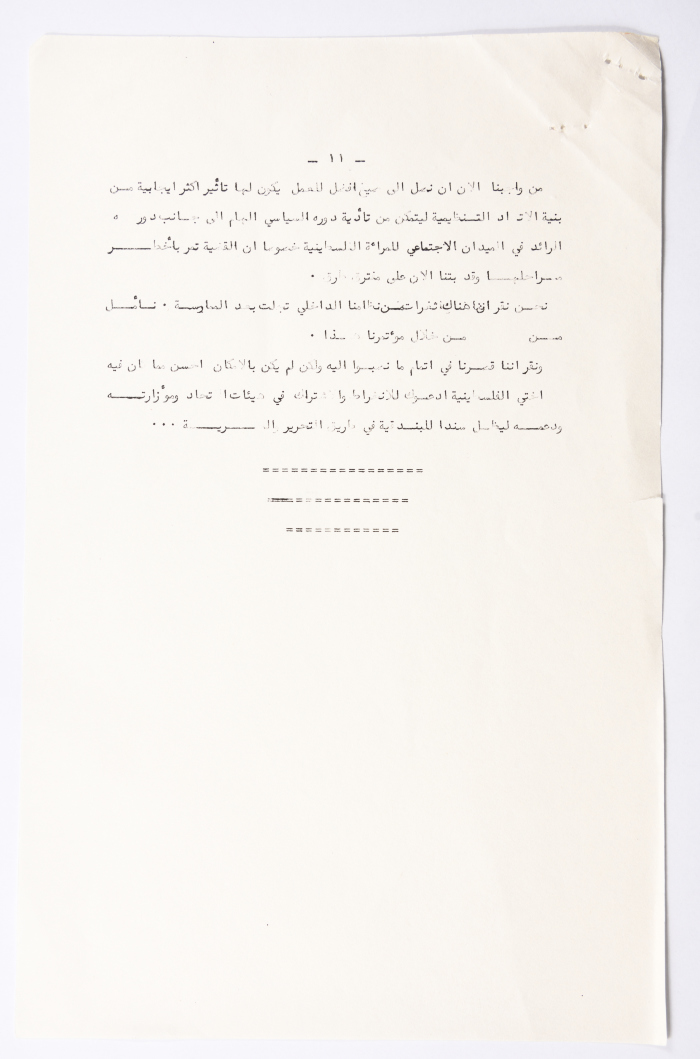 - ١١ -
من واجبنا الان ان نصل الى صيغ افضل للعمل يكون لها تأثير اكثر ايجابية مـن
بنية الاتحاد التنظيمية ليتمكن من تأدية دوره السياسي الهام الى جانب دوره
الرائد في الميدان الاجتماعي للمرأة الفلسطينية خصوصا ان القضية تمر بأخطـــر
مراحلهـا وقد بتنا الان على مفترق طرق .
نحـن نقر ان هناك ثغرات ضمن نظامنا الداخلي تجلت بعد الممارسة . نـأمـل
مـن مـن خلال مؤتمرنا هـذا .
ونقر اننا قصرنا في اتمام ما نصبوا اليه ولكن لم يكن بالامكان احسن مما كان فيه
اختي الفلسطينية ادعوك للانخراط والاشتراك في هيئات الاتحاد ومؤازرتـــه
ودعمـــه ليظـل سندا للبندقية في طريق التحرير والحـــريـــة ...
=================
===============
============